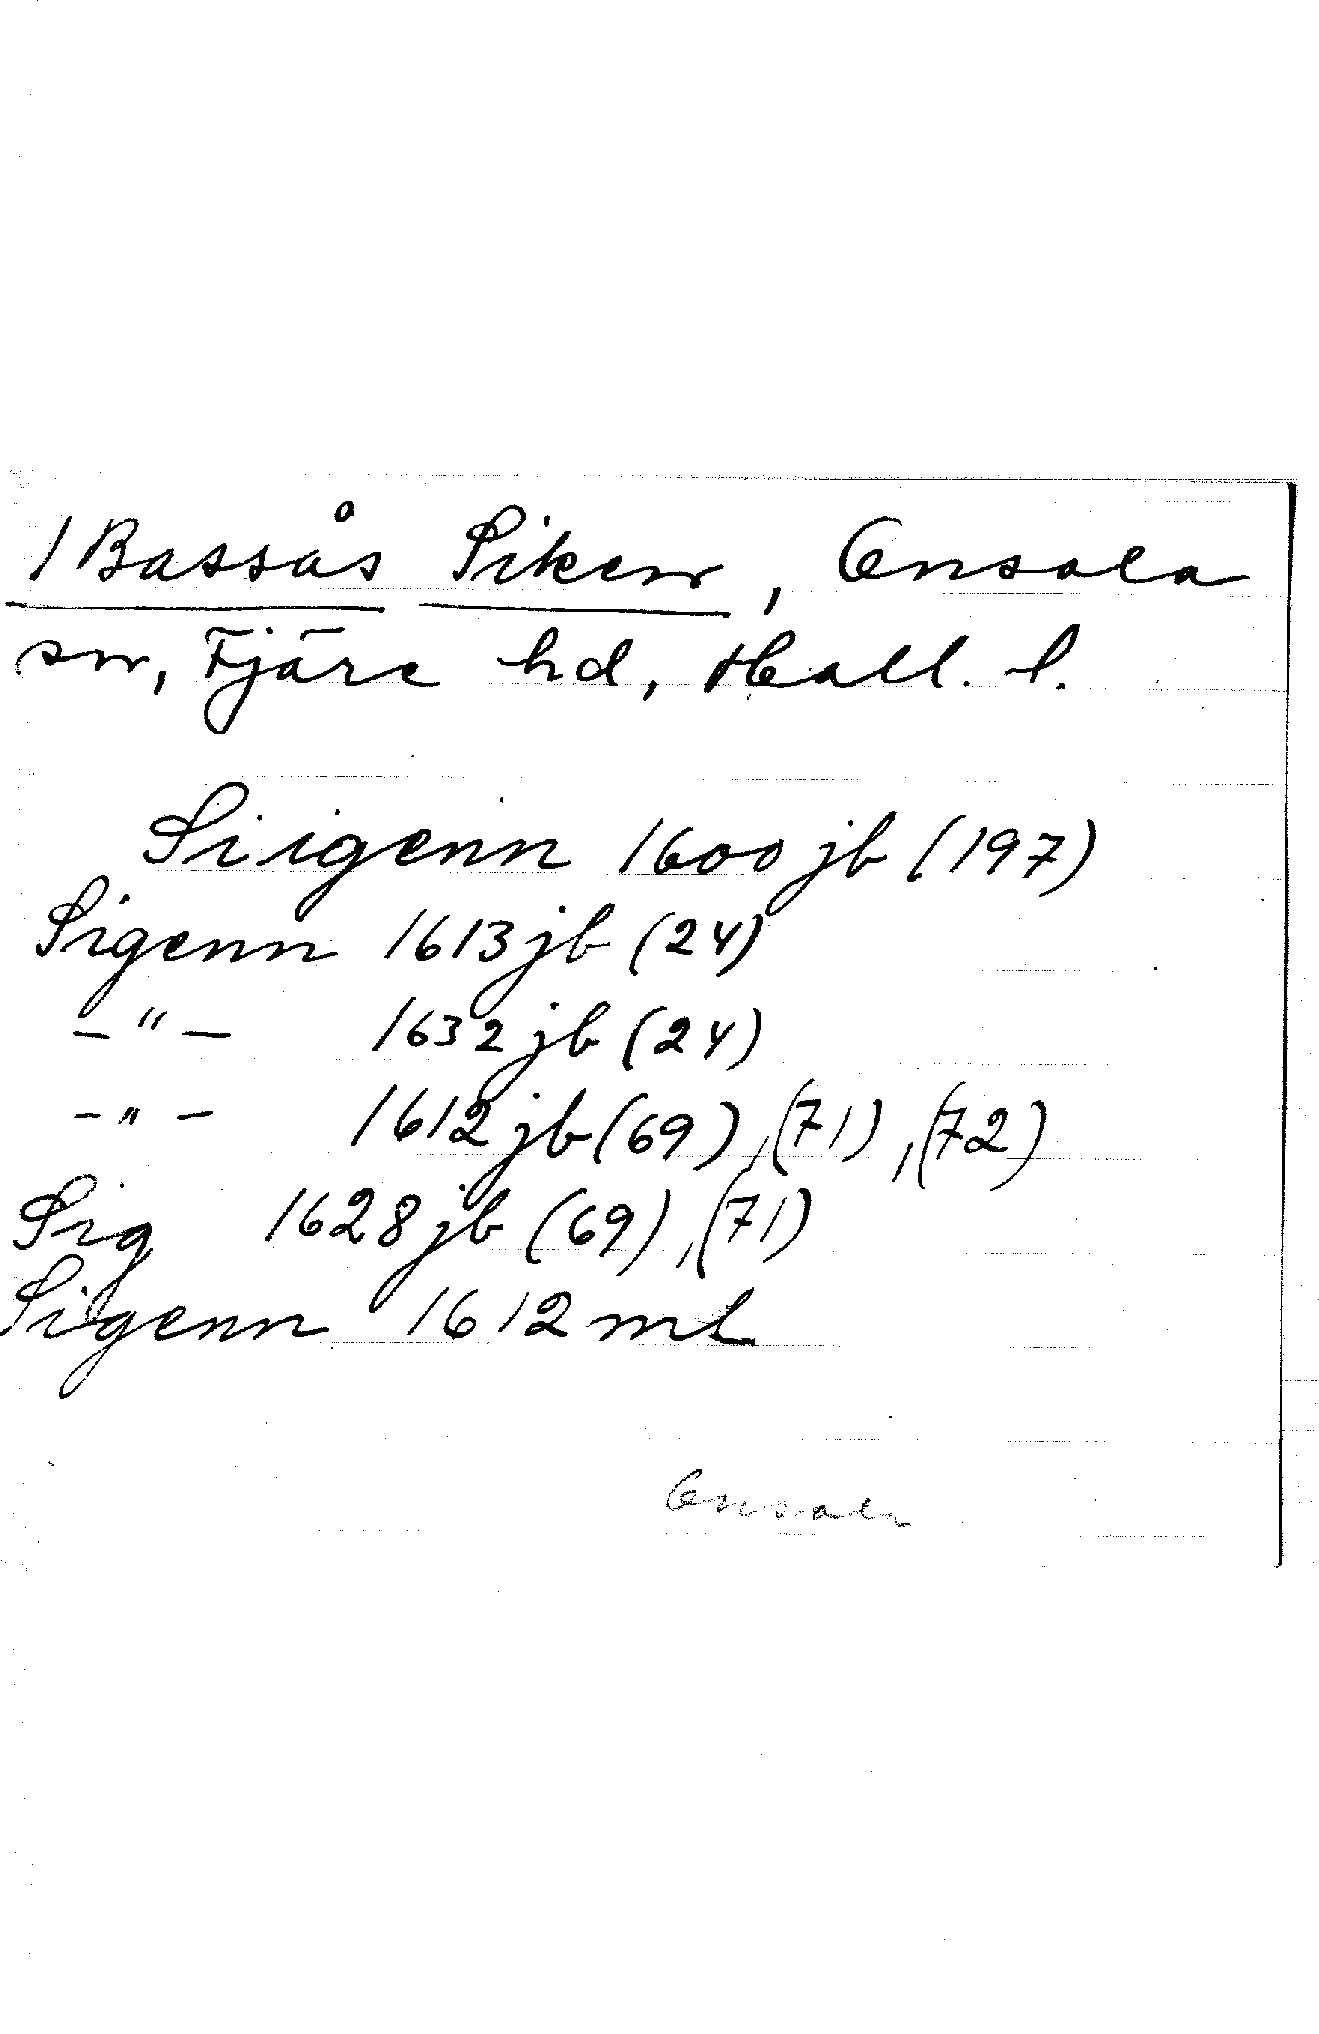 1 Bassås Siken, Onsala
sn, Fjäre hd, Hall. l.
Siigenn 1600 jb (197)
Sigenn 1613 jb (24)
- " - 1632 jb (24)
- " - 1612 jb (69), (71), (72)
Sig 1628 jb (69), (71)
Sigenn 1612 ml
Onsala